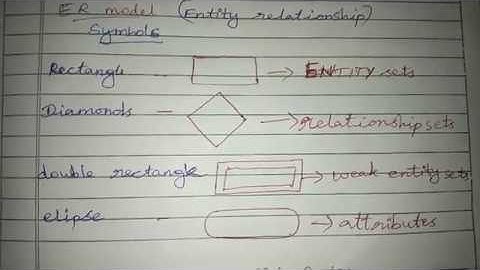 ER model (Entity relationship)
Symbols
Rectangle - → ENTITY sets
Diamonds - → relationship sets
double rectangle → weak entity sets
elipse - → attributes